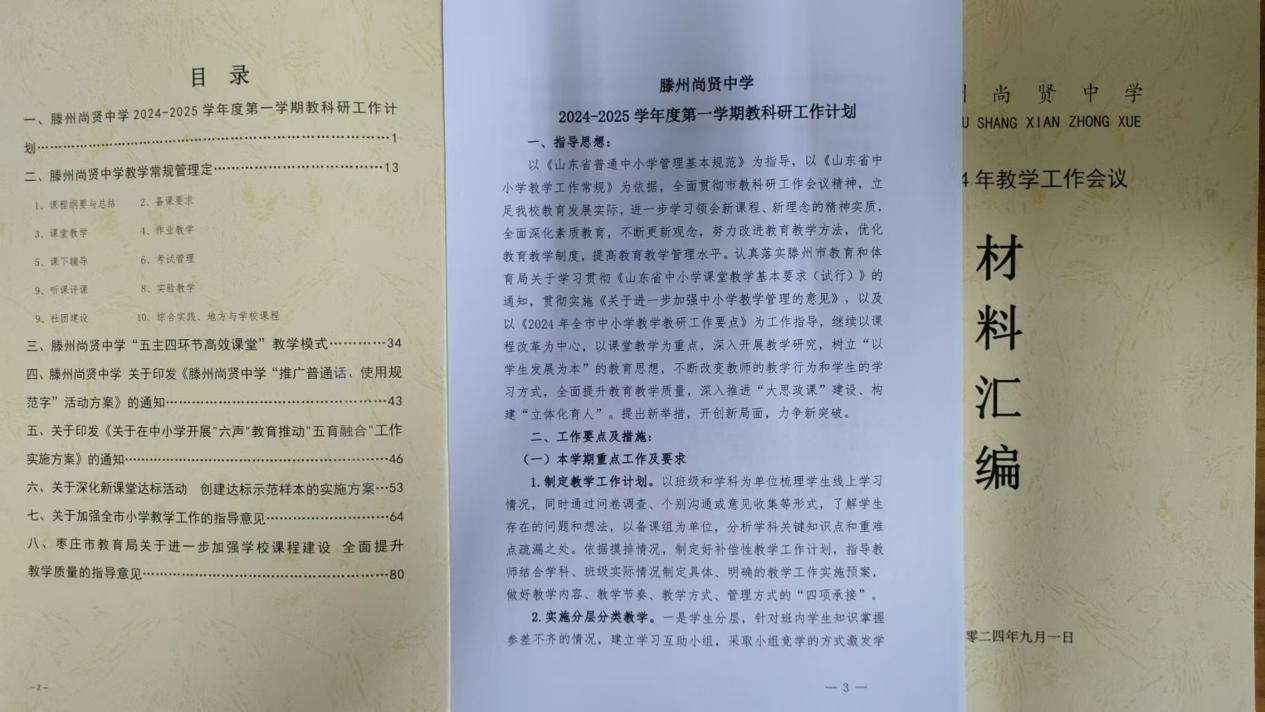 目 录
一、滕州尚贤中学2024-2025学年度第一学期教科研工作计
划……1
二、滕州尚贤中学教学常规管理定……13
1、课程纲要与总结 2、备课要求
3、课堂教学 4、作业教学
5、课下辅导 6、考试管理
9、听课评课 8、实验教学
9、社团建设 10、综合实践、地方与学校课程
三、滕州尚贤中学“五主四环节高效课堂”教学模式……34
四、滕州尚贤中学 关于印发《滕州尚贤中学“推广普通话、使用规
范字”活动方案》的通知……43
五、关于印发《关于在中小学开展“六声”教育推动“五育融合”工作
实施方案》的通知……46
六、关于深化新课堂达标活动 创建达标示范样本的实施方案…53
七、关于加强全市小学教学工作的指导意见……64
八、枣庄市教育局关于进一步加强学校课程建设 全面提升
教学质量的指导意见……80
-2-
滕州尚贤中学
2024-2025学年度第一学期教科研工作计划
一、指导思想：
以《山东省普通中小学管理基本规范》为指导，以《山东省中
小学教学工作常规》为依据，全面贯彻市教科研工作会议精神，立
足我校教育发展实际，进一步学习领会新课程、新理念的精神实质，
全面深化素质教育，不断更新观念，努力改进教育教学方法，优化
教育教学制度，提高教育教学管理水平。认真落实滕州市教育和体
育局关于学习贯彻《山东省中小学课堂教学基本要求（试行）》的
通知，贯彻实施《关于进一步加强中小学教学管理的意见》，以及
以《2024年全市中小学教学教研工作要点》为工作指导，继续以课
程改革为中心，以课堂教学为重点，深入开展教学研究，树立“以
学生发展为本”的教育思想，不断改变教师的教学行为和学生的学
习方式，全面提升教育教学质量，深入推进“大思政课”建设、构
建“立体化育人”。提出新举措，开创新局面，力争新突破。
二、工作要点及措施：
（一）本学期重点工作及要求
1.制定教学工作计划。以班级和学科为单位梳理学生线上学习
情况，同时通过问卷调查、个别沟通或意见收集等形式，了解学生
存在的问题和想法，以备课组为单位，分析学科关键知识点和重难
点疏漏之处。依据摸排情况，制定好补偿性教学工作计划，指导教
师结合学科、班级实际情况制定具体、明确的教学工作实施预案，
做好教学内容、教学节奏、教学方式、管理方式的“四项承接”。
2.实施分层分类教学。一是学生分层，针对班内学生知识掌握
参差不齐的情况，建立学习互助小组，采取小组竞学的方式激发学
— 3 —
尚 贤 中 学
U SHANG XIAN ZHONG XUE
4年教学工作会议
材
料
汇
编
零二四年九月一日